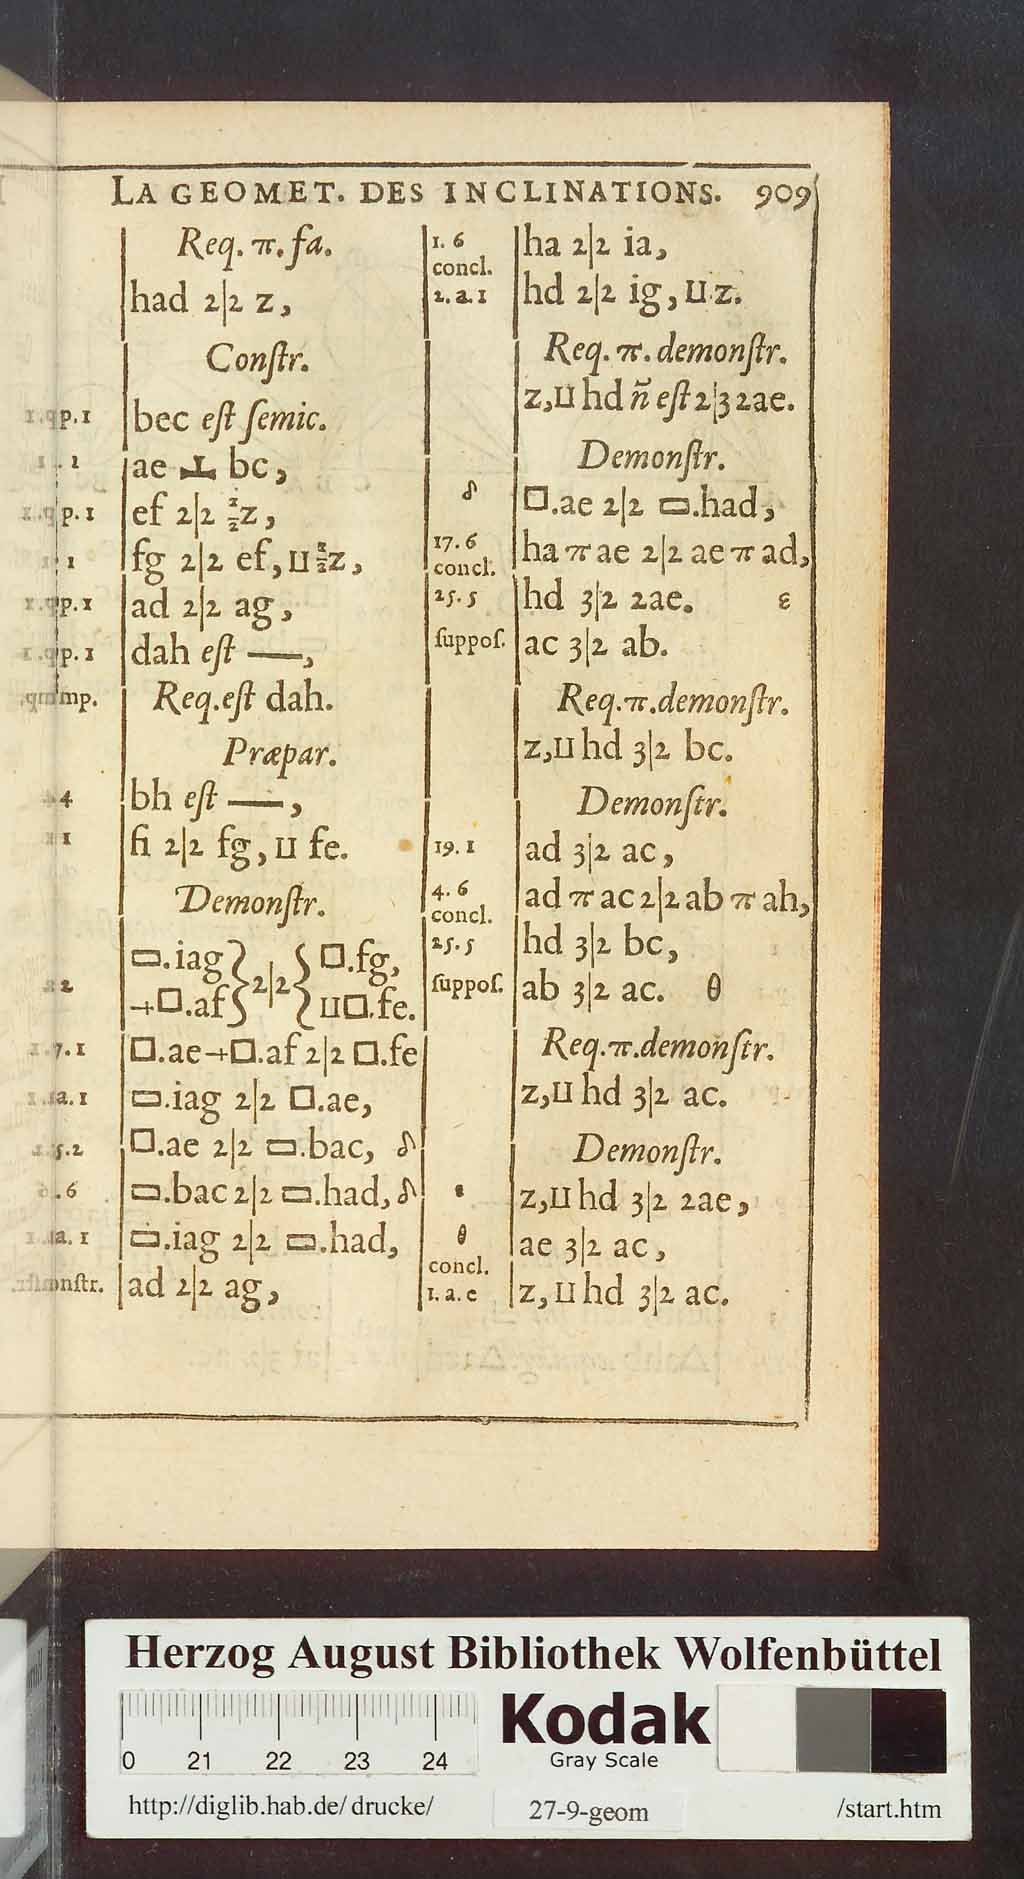 LA GEOMET. DES INCLINATIONS. 909
Req. π. fa.
had 2|2 z,
Conſtr.
bec eſt ſemic.
ae ⊥ bc,
ef 2|2 ½z,
fg 2|2 ef, ⊔ ½z,
ad 2|2 ag,
dah eſt —,
Req. eſt dah.
Præpar.
bh eſt —,
fi 2|2 fg, ⊔ fe.
Demonſtr.
▭.iag } 2|2 { □.fg,
+□.af } { ⊔□.fe.
□.ae+□.af 2|2 □.fe
▭.iag 2|2 □.ae,
□.ae 2|2 ▭.bac, δ
▭.bac 2|2 ▭.had, δ
▭.iag 2|2 ▭.had,
ad 2|2 ag,
1. 6 ha 2|2 ia,
concl.
2. a. 1 hd 2|2 ig, ⊔ z.
Req. π. demonſtr.
z, ⊔ hd ñ eſt 2|3 2ae.
Demonſtr.
δ □.ae 2|2 ▭.had,
17. 6 ha π ae 2|2 ae π ad,
concl.
25. 5 hd 3|2 2ae. ε
ſuppoſ. ac 3|2 ab.
Req. π. demonſtr.
z, ⊔ hd 3|2 bc.
Demonſtr.
19. 1 ad 3|2 ac,
4. 6 ad π ac 2|2 ab π ah,
concl.
25. 5 hd 3|2 bc,
ſuppoſ. ab 3|2 ac. θ
Req. π. demonſtr.
z, ⊔ hd 3|2 ac.
Demonſtr.
ε z, ⊔ hd 3|2 2ae,
θ ae 3|2 ac,
concl.
1. a. e z, ⊔ hd 3|2 ac.
Herzog August Bibliothek Wolfenbüttel
0 21 22 23 24
Kodak
Gray Scale
http://diglib.hab.de/drucke/ 27-9-geom /start.htm